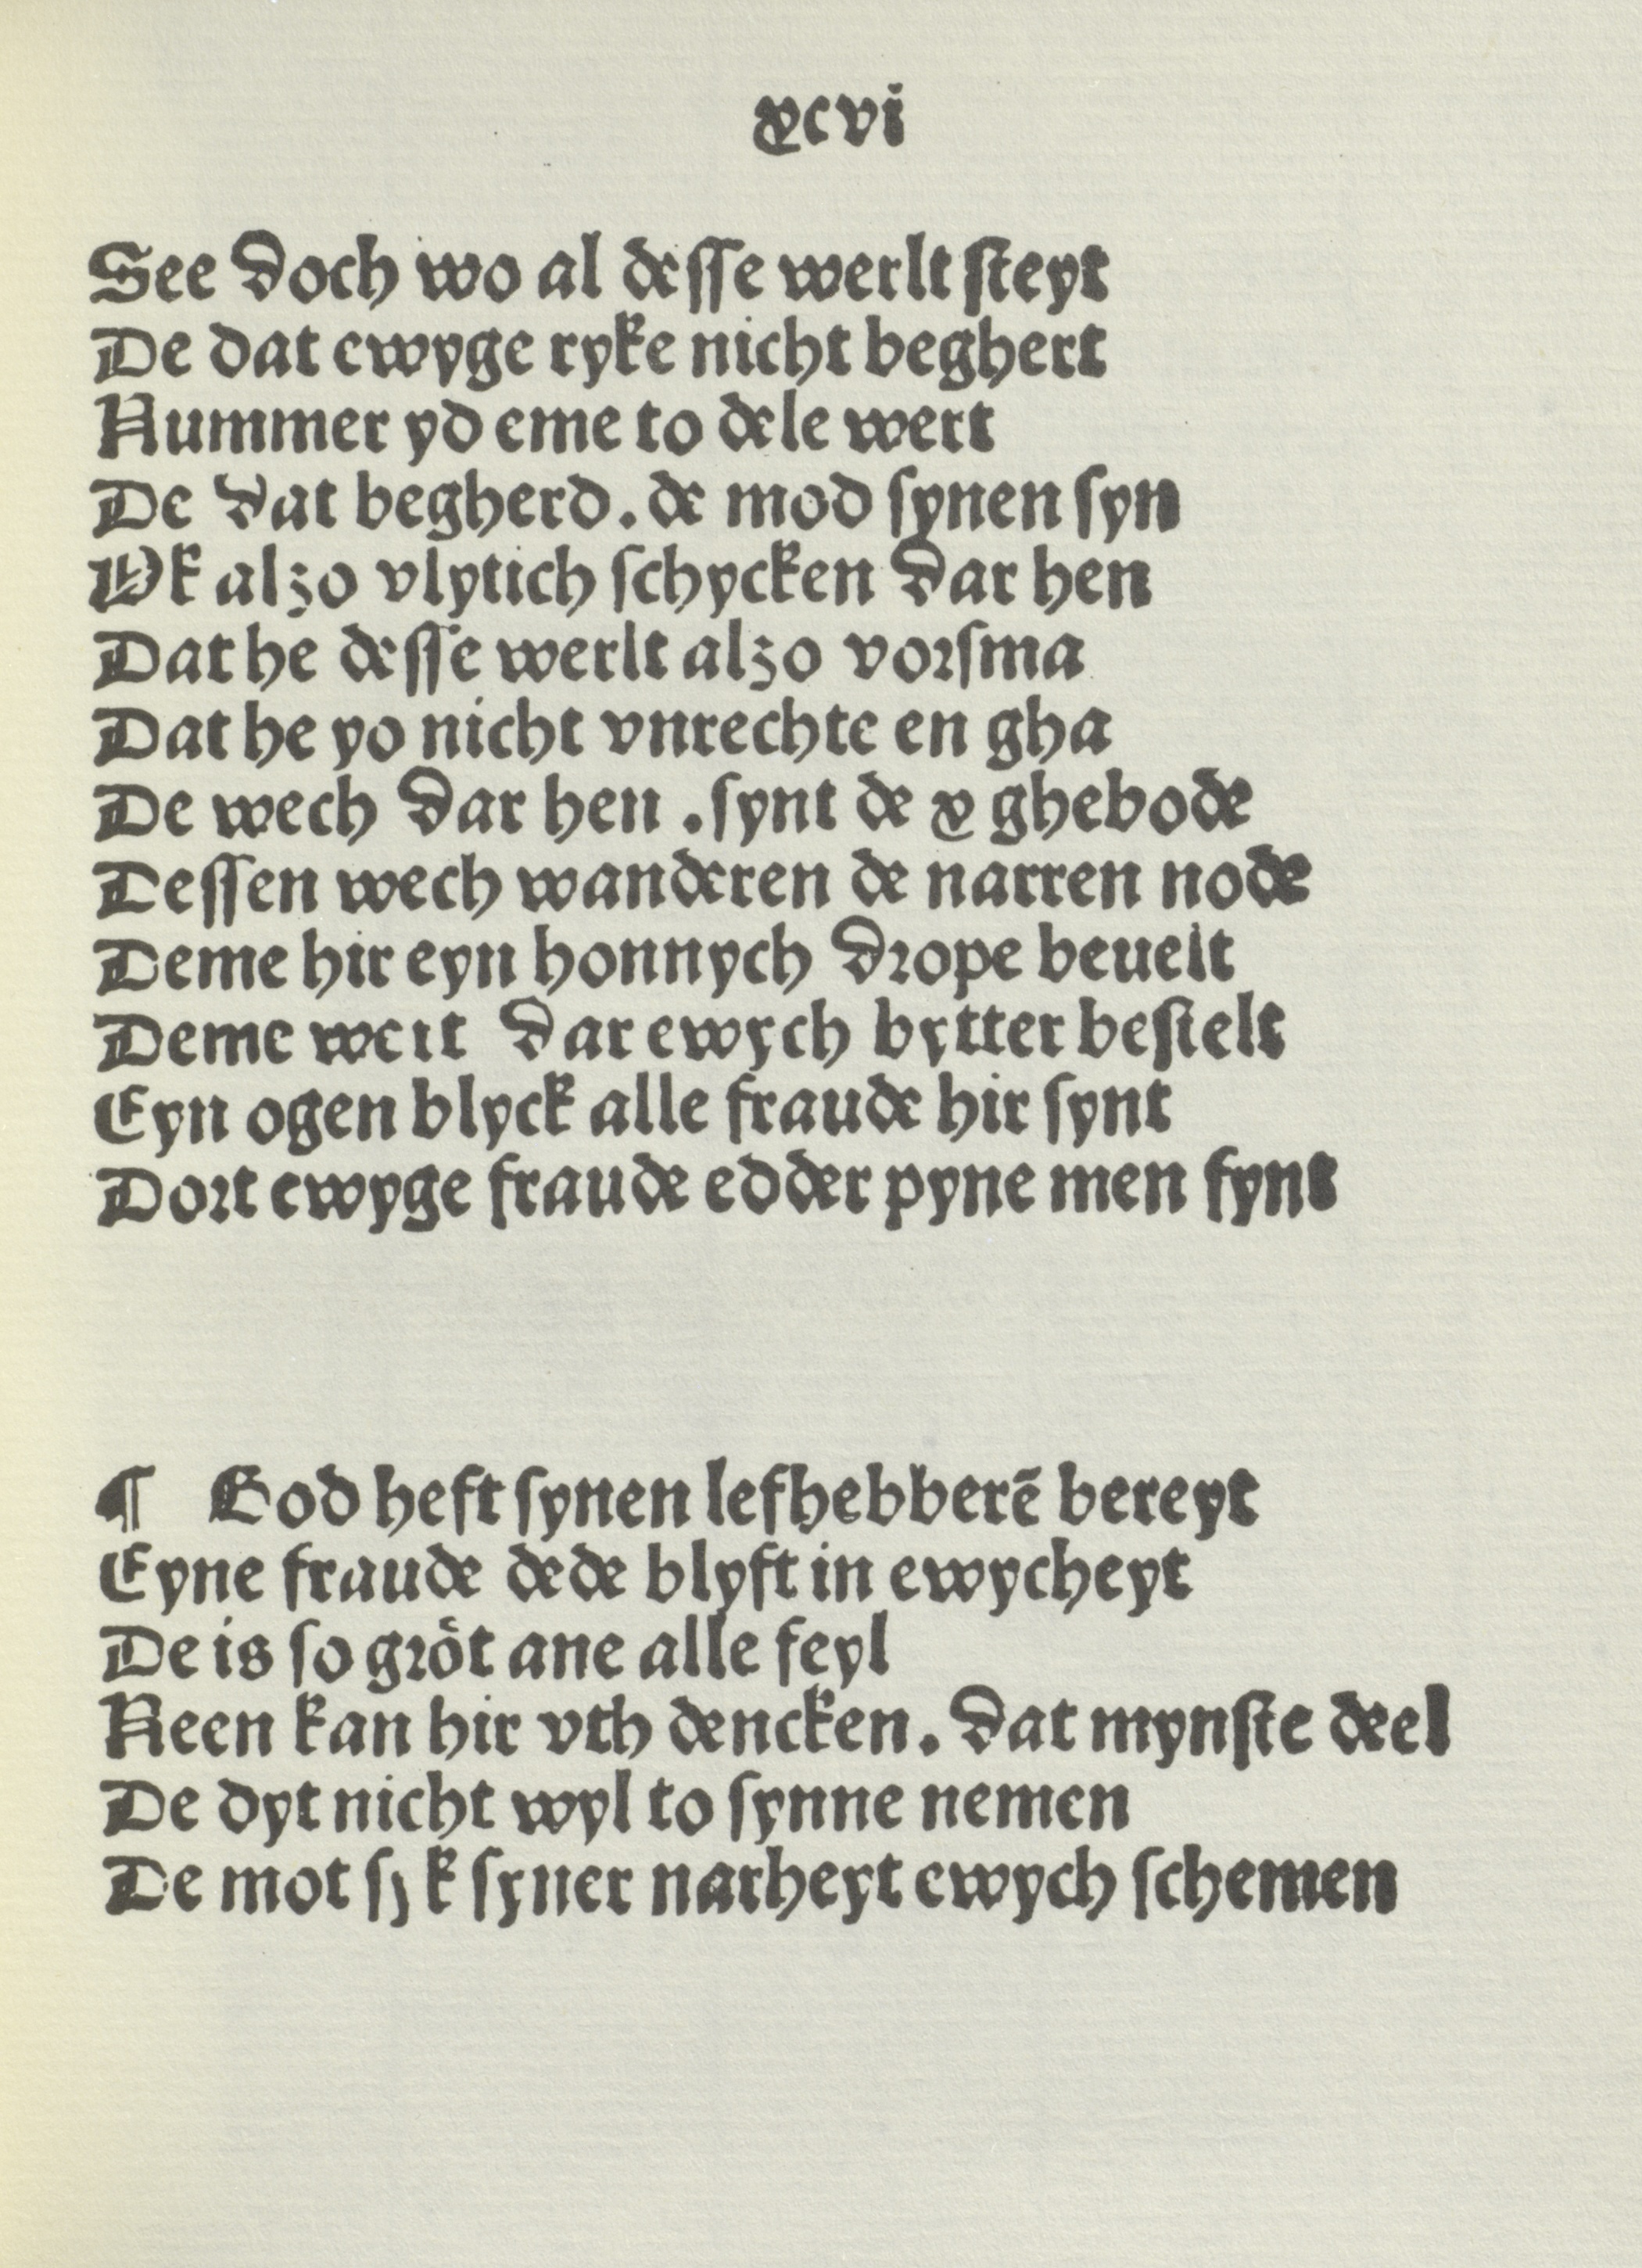 xcvi
See doch wo al deſſe werlt ſteyt
De dat ewyge ryke nicht beghert
Nummer yd eme to dele wert
De dat begherd. de mod ſynen ſyn
Ok alzo vlytich ſchycken dar hen
Dat he deſſe werlt alzo vorſma
Dat he yo nicht vnrechte en gha
De wech dar hen .ſynt de x ghebode
Deſſen wech wanderen de narren node
Deme hir eyn honnych drope beuelt
Deme wert dar ewych bytter beſtelt
Eyn ogen blyck alle fraude hir ſynt
Dort ewyge fraude edder pyne men fynt
¶ God heft ſynen lefhebberē bereyt
Eyne fraude dede blyft in ewycheyt
De is ſo grot ane alle feyl
Neen kan hir vth dencken. dat mynſte deel
De dyt nicht wyl to ſynne nemen
De mot ſyk ſyner narheyt ewych ſchemen